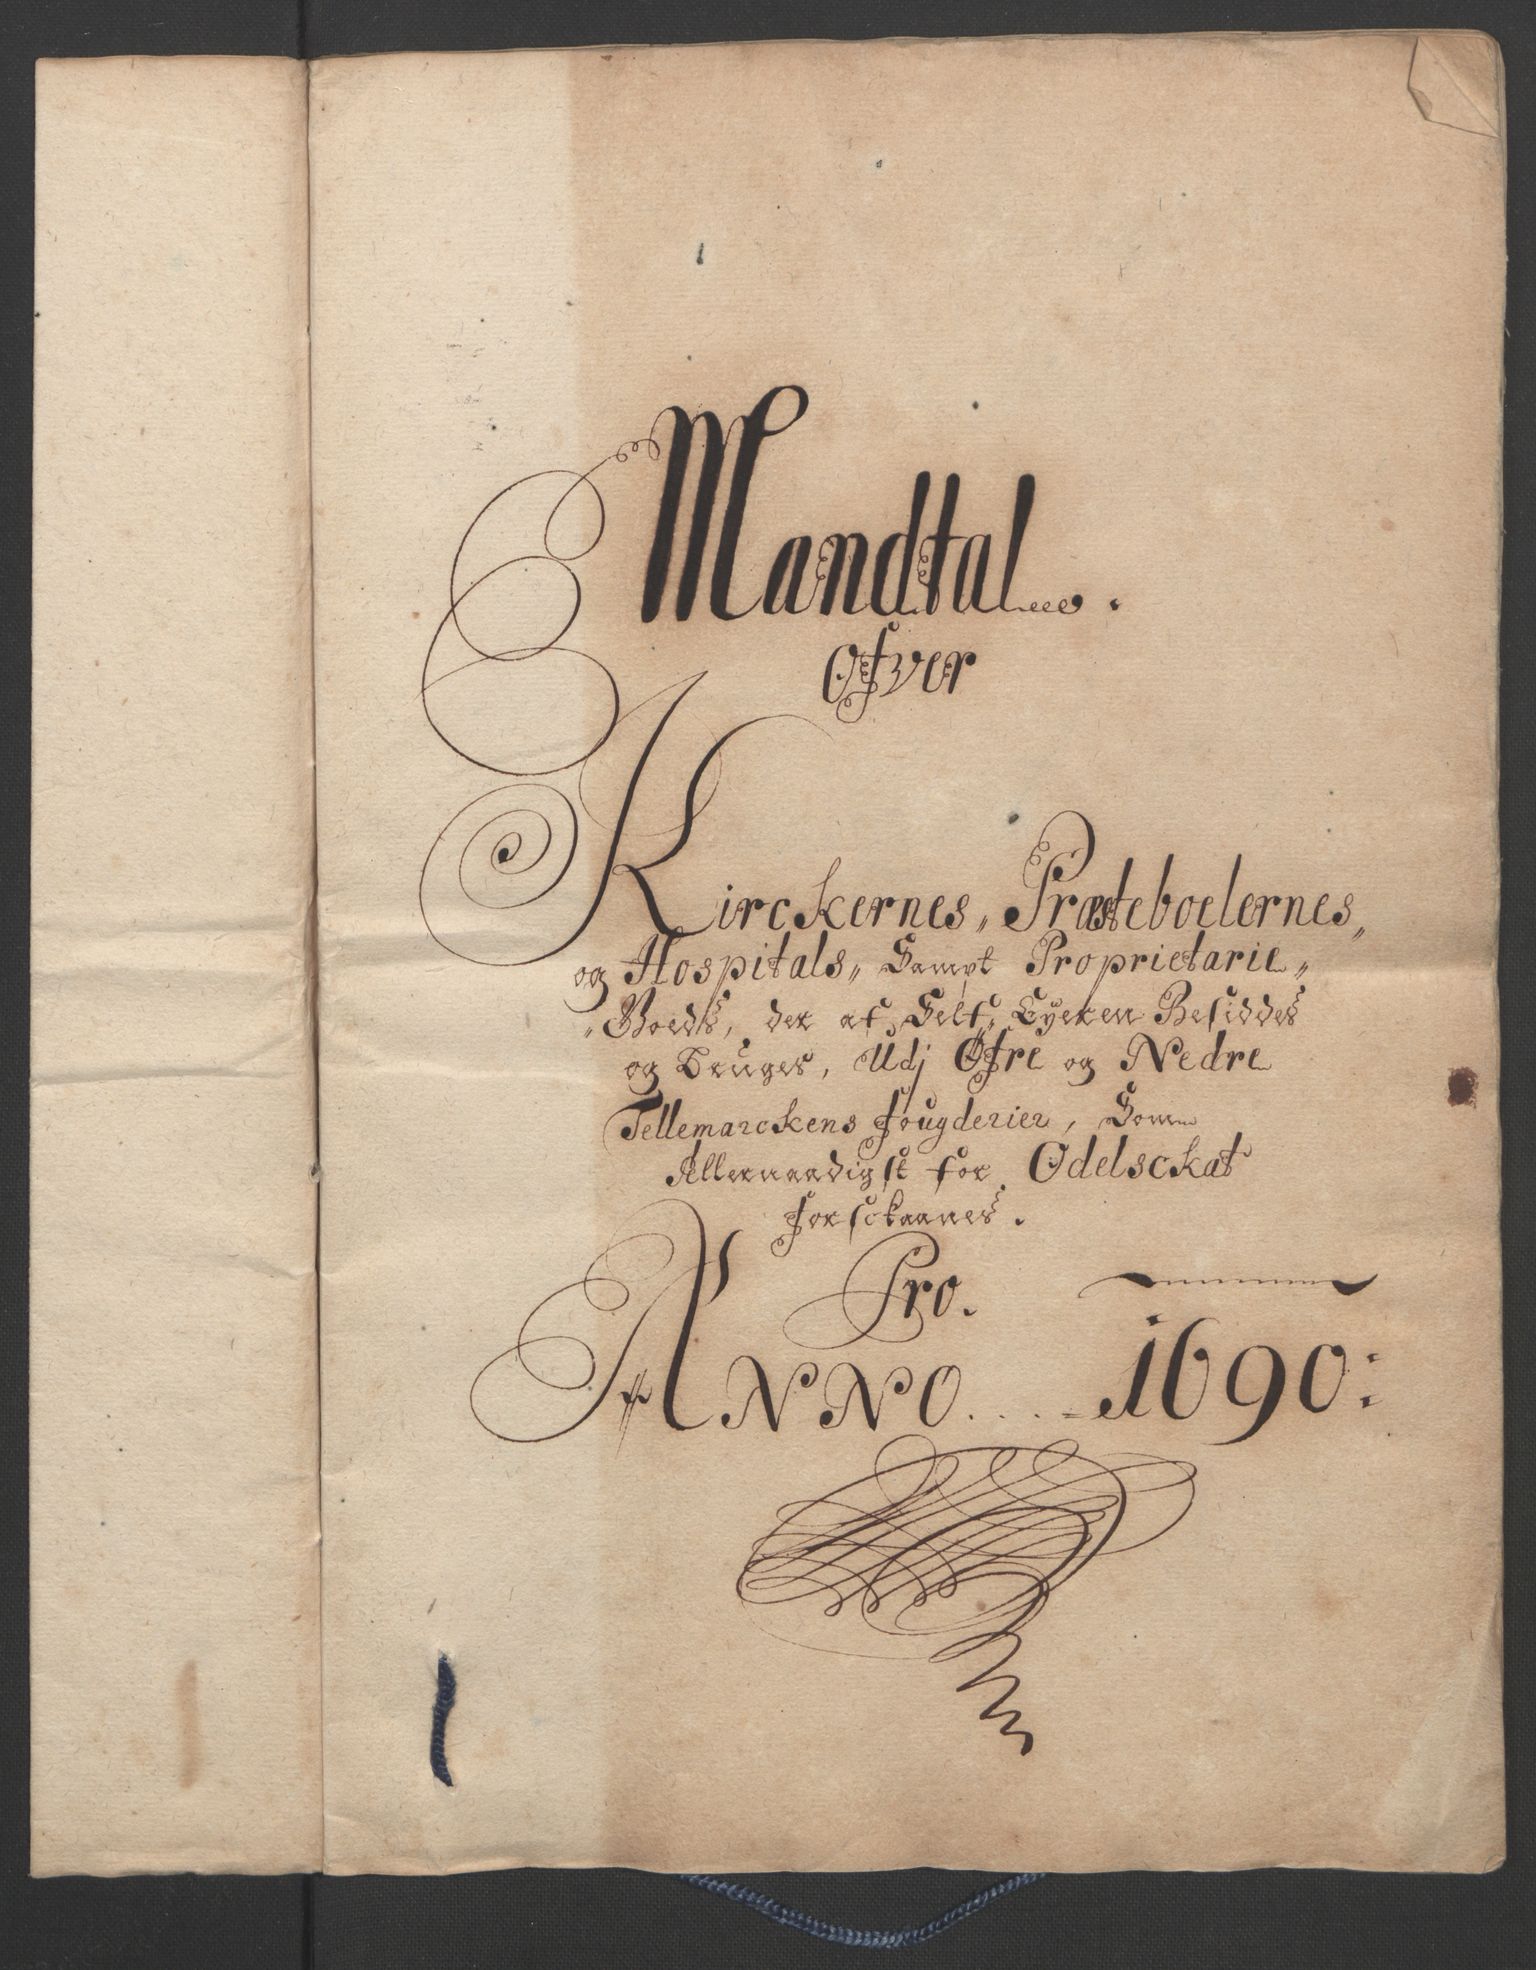 Mandtal.
Ofver
Kirckernes, Præsteboelernes,
og Hospitals, Sampt Proprietarie
Goeds, der af Self Eyeren Besiddes
og Bruges, Udj Øfre og Nedre
Tellemarckens fougderier, Som
Allernaadigst for Odelsckat
forsckaanes.
Pro.
ANNO .... 1690: